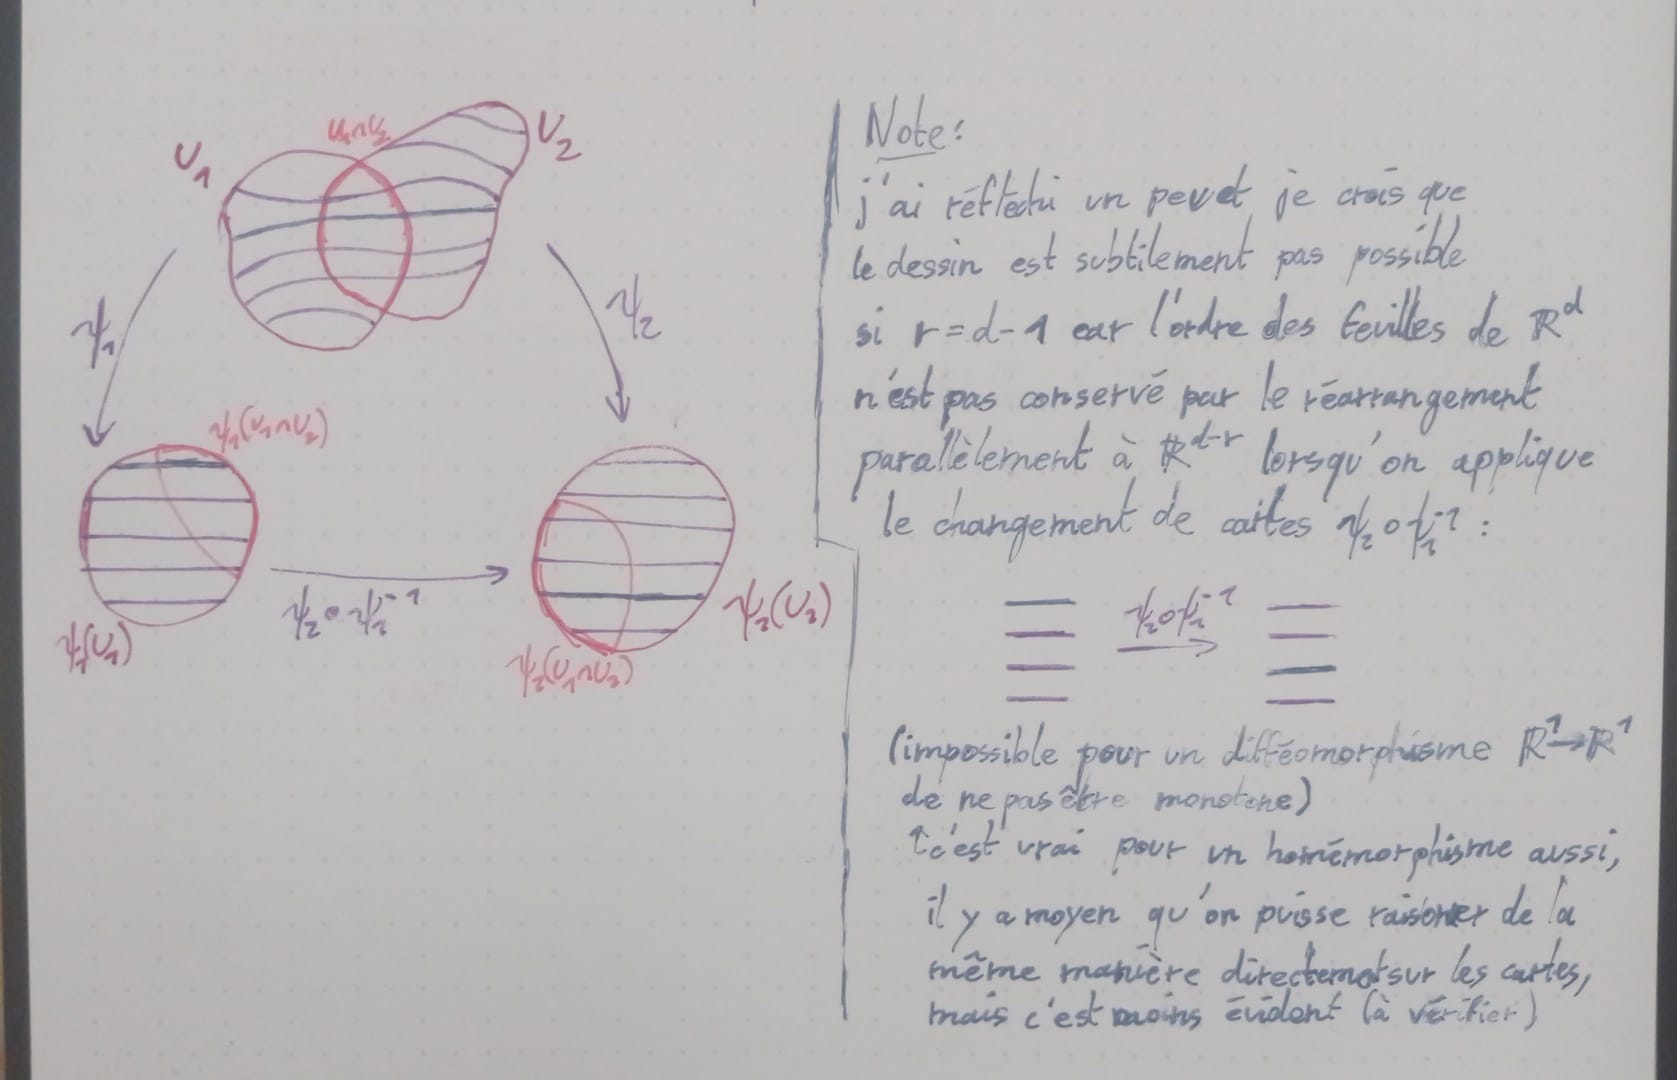 U₁
U₁∩U₂
U₂
ψ₁
ψ₂
ψ₁(U₁∩U₂)
ψ₂∘ψ₁⁻¹
ψ₁(U₁)
ψ₂(U₂)
ψ₂(U₁∩U₂)
Note:
j'ai réfléchi un peu et je crois que
le dessin est subtilement pas possible
si r=d-1 car l'ordre des feuilles de ℝᵈ
n'est pas conservé par le réarrangement
parallèlement à ℝᵈ⁻ʳ lorsqu'on applique
le changement de cartes ψ₂∘ψ₁⁻¹ :
ψ₂∘ψ₁⁻¹
(impossible pour un difféomorphisme ℝ¹→ℝ¹
de ne pas être monotone)
↑ c'est vrai pour un homémorphisme aussi,
il y a moyen qu'on puisse raisoner de la
même manière directemet sur les cartes,
mais c'est moins évident (à vérifier)